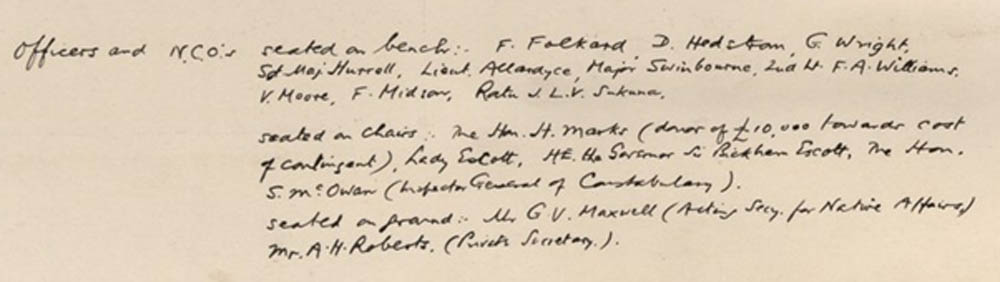 Officers and N.C.O's seated on bench:- F. Folkard, D. Hedstrom, G. Wright,
Sgt Maj Hurrell, Lieut. Allardyce, Major Swinbourne, 2nd Lt. F.A. Williams.
V. Moore, F. Midson, Ratu J.L.V. Sukuna.
seated on chairs:- The Hon. H. Marks (donor of £10,000 towards cost
of contingent), Lady Escott, HE. the Governor Sir Bickham Escott, The Hon.
S. McOwan (Inspector General of Constabulary).
seated on ground:- Mr G.V. Maxwell (Acting Secy. for Native Affairs,)
Mr. A.H. Roberts. (Private Secretary.).